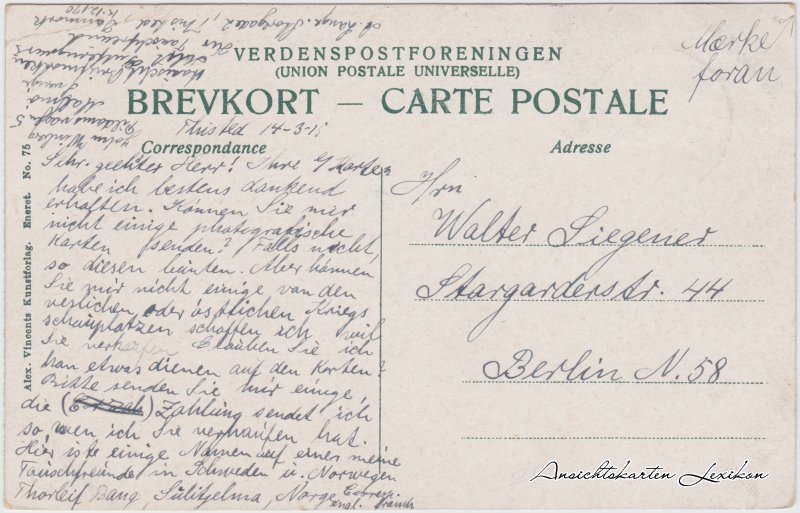 VERDENSPOSTFORENINGEN
(UNION POSTALE UNIVERSELLE)
BREVKORT — CARTE POSTALE
Thisted 14-3-15
Correspondance
Adresse
Mærke
foran
Sehr geehter Herr! Ihre 9 Karten
habe ich bestens dankend
erhalten. Können Sie mir
nicht einige photografische
Karten senden? Falls nicht,
so diesen bunten. Aber können
Sie mir nicht einige van den
vestlichen oder östlichen Kriegs
schauplatzen schaffen ich will
Sie verkaufen Glauben Sie ich
kan etwas dienen auf den Karten?
Bitte senden Sie mir einige,
die Zahlung sendet ich
so wen ich Sie verkaufen hat.
Hier iste einige Namen auf einer meine
Tauschfreunde in Schweden u. Norwegen
Thorleif Bang, Sulitjelma, Norge Corresp.
engl. fransk
Hrn
Walter Siegener
Stargarderstr. 44
Berlin N. 58
Malmö
Sverige
Tauschfreund
Thisted, Danmark
Alex. Vincents Kunstforlag. Eneret. No. 75
Ansichtskarten Lexikon